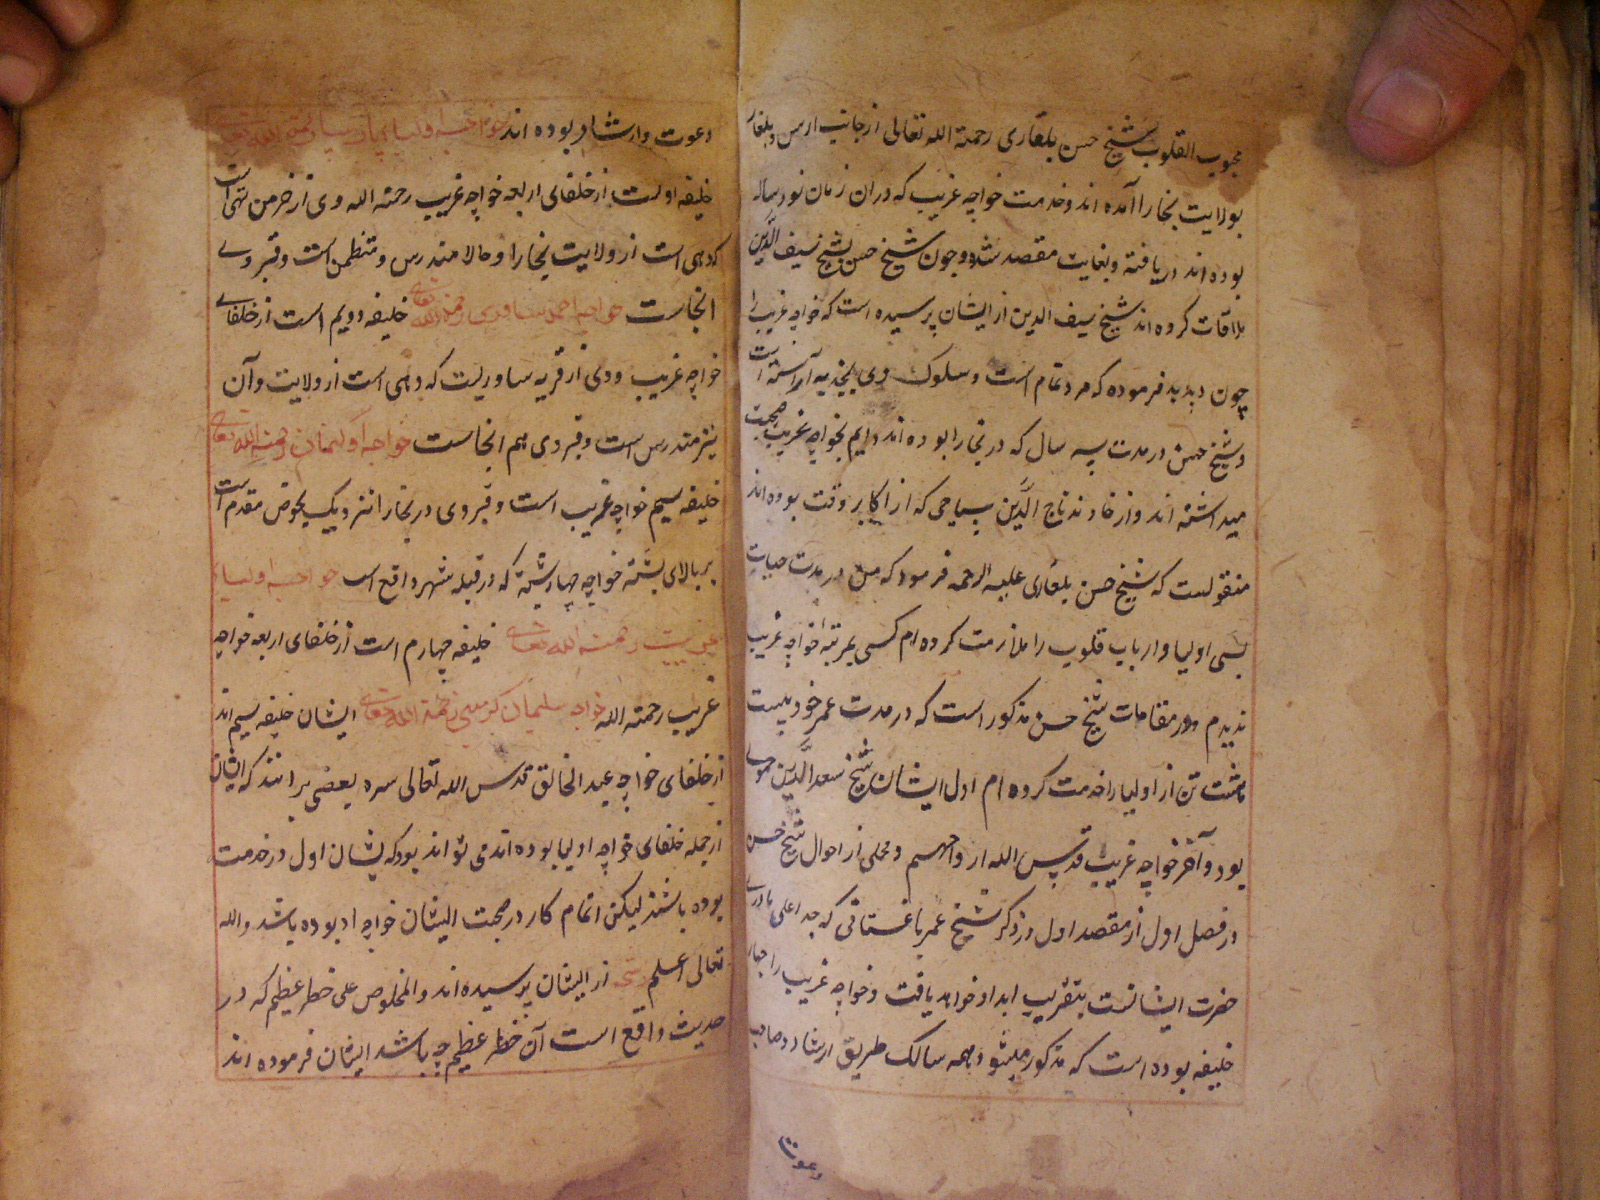 محبوب القلوب شیخ حسن بلغاری رحمة الله تعالی از جانب ارس و بلغار
بولایت بخارا آمده اند و خدمت خواجه غریب که دران زمان نود ساله
بوده اند دریافته و بغایت معتقد شده و چون شیخ حسن بشیخ سیف الدین
ملاقات کرده اند شیخ سیف الدین از ایشان پرسیده است که خواجه غریب را
چون دیدید فرموده که مرد تمام است و سلوک وی بجذبه آراسته است
و شیخ حسن در مدت سه سال که در بخارا بوده اند دایم بخواجه غریب صحبت
میداشته اند و از خاوند تاج الدین که از اکابر وقت بوده اند
منقولست که شیخ حسن بلغاری علیه الرحمه فرمود که من در مدت حیات
بسی اولیا و ارباب قلوب را ملازمت کرده ام کسی بمرتبه خواجه غریب
ندیدم و در مقامات شیخ حسن مذکور است که در مدت عمر خود بیست
و هشت تن از اولیا را خدمت کرده ام اول ایشان شیخ سعد الدین حموی
بود و آخر خواجه غریب قدس الله ارواحهم و محلی از احوال شیخ حسن
در فصل اول از مقصد اول در ذکر شیخ عمر باغستانی که جد اعلی مادری
حضرت ایشانست بتقریب ایراد خواهد یافت و خواجه غریب را چهار
خلیفه بوده است که مذکور میشود و همه سالک طریق ارشاد و صاحب
دعوت
دعوت و ارشاد بوده اند خواجه اولیا رحمة الله تعالی
خلیفه اولست از خلفای اربعه خواجه غریب رحمة الله وی از خرمن تهی است
که دهی است از ولایت بخارا و حالا مندرس و منطمس است و قبر وی
انجاست خواجه احمد ساوری رحمة الله تعالی خلیفه دویم است از خلفای
خواجه غریب و وی از قریه ساوریست که دهی است از ولایت و آن
نیز مندرس است و قبر وی هم انجاست خواجه اولیمان رحمة الله تعالی
خلیفه سیم خواجه غریب است و قبر وی در بخارا نزدیک بحوض مقدم است
بر بالای پشته خواجه چهار شنبه که در قبله شهر واقع است خواجه اولیاء
غریب رحمة الله تعالی خلیفه چهارم است از خلفای اربعه خواجه
غریب رحمة الله خواجه سلیمان کرمینی رحمة الله تعالی ایشان خلیفه سیم اند
از خلفای خواجه عبد الخالق قدس الله تعالی سره بعضی برانند که ایشان
از جمله خلفای خواجه اولیا بوده اند می تواند بود که ایشان اول در خدمت
بوده باشند لیکن اتمام کار در صحبت ایشان خواجه اولیا بوده باشد والله
تعالی اعلم از ایشان پرسیده اند و المخلصون علی خطر عظیم که در
حدیث واقع است آن خطر عظیم چه باشد ایشان فرموده اند